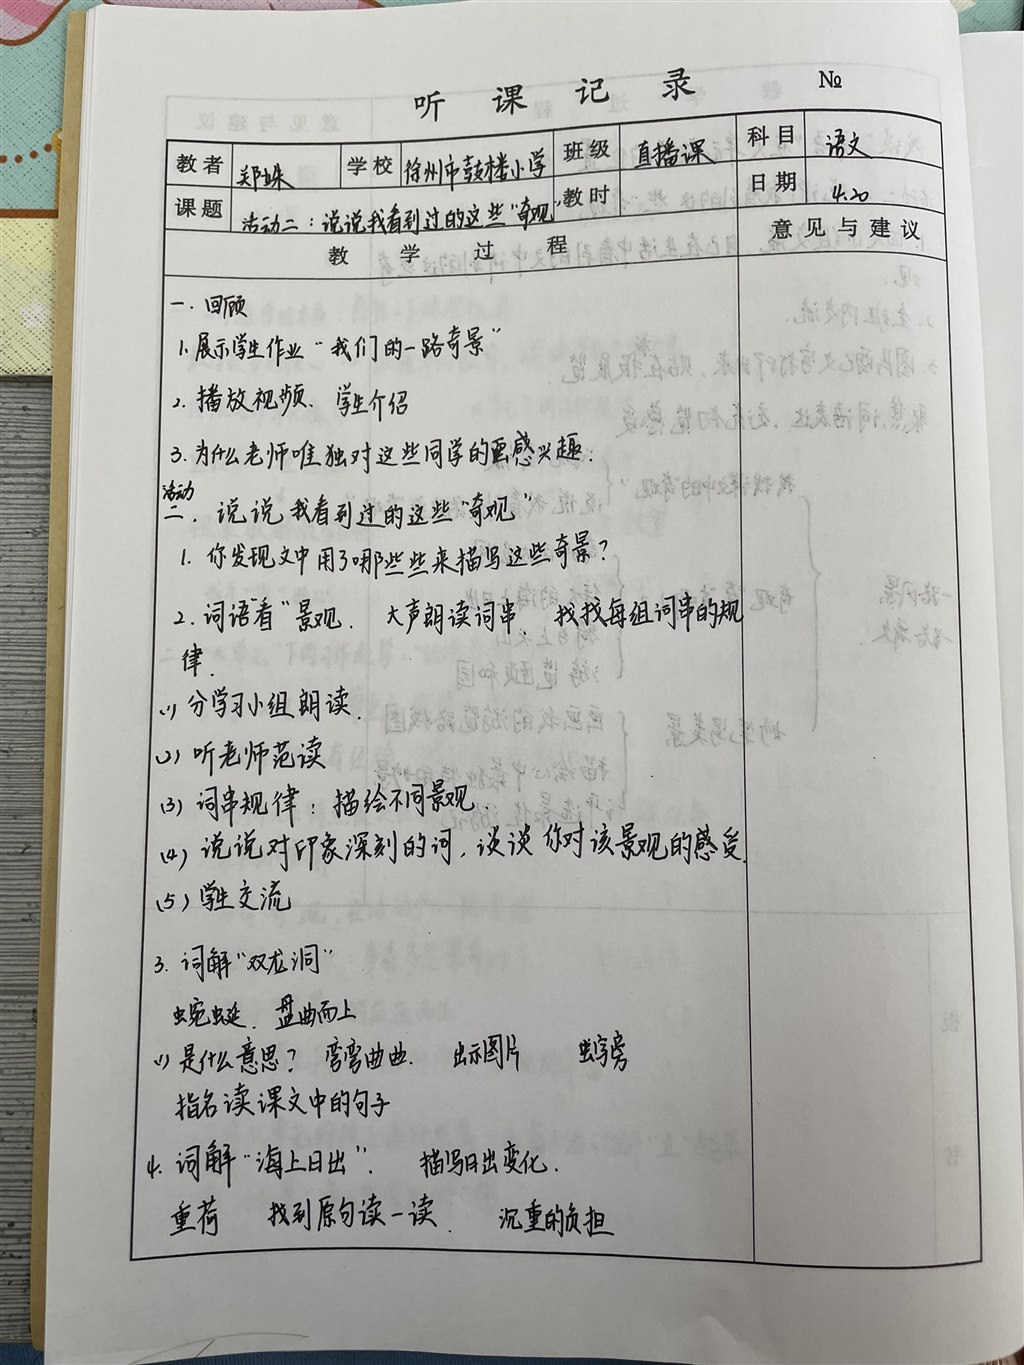 听课记录 №
教者 郑姝 学校 徐州市鼓楼小学 班级 直播课 科目 语文
课题 活动二：说说我看到过的这些"奇观" 教时 日期 4.20
教学过程 意见与建议
一. 回顾
1. 展示学生作业"我们的一路奇景"
2. 播放视频、学生介绍
3. 为什么老师唯独对这些同学的画感兴趣.
活动
二. 说说我看到过的这些"奇观"
1. 你发现文中用了哪些些来描写这些奇景？
2. 词语"看"景观. 大声朗读词串 找找每组词串的规
律.
(1) 分学习小组朗读.
(2) 听老师范读
(3) 词串规律：描绘不同景观.
(4) 说说对印象深刻的词，谈谈你对该景观的感受.
(5) 学生交流
3. 词解"双龙洞"
蜿蜒、盘曲而上
(1) 是什么意思？弯弯曲曲. 出示图片 虫字旁
指名读课文中的句子
4. 词解"海上日出". 描写日出变化.
重荷 找到原句读一读. 沉重的负担